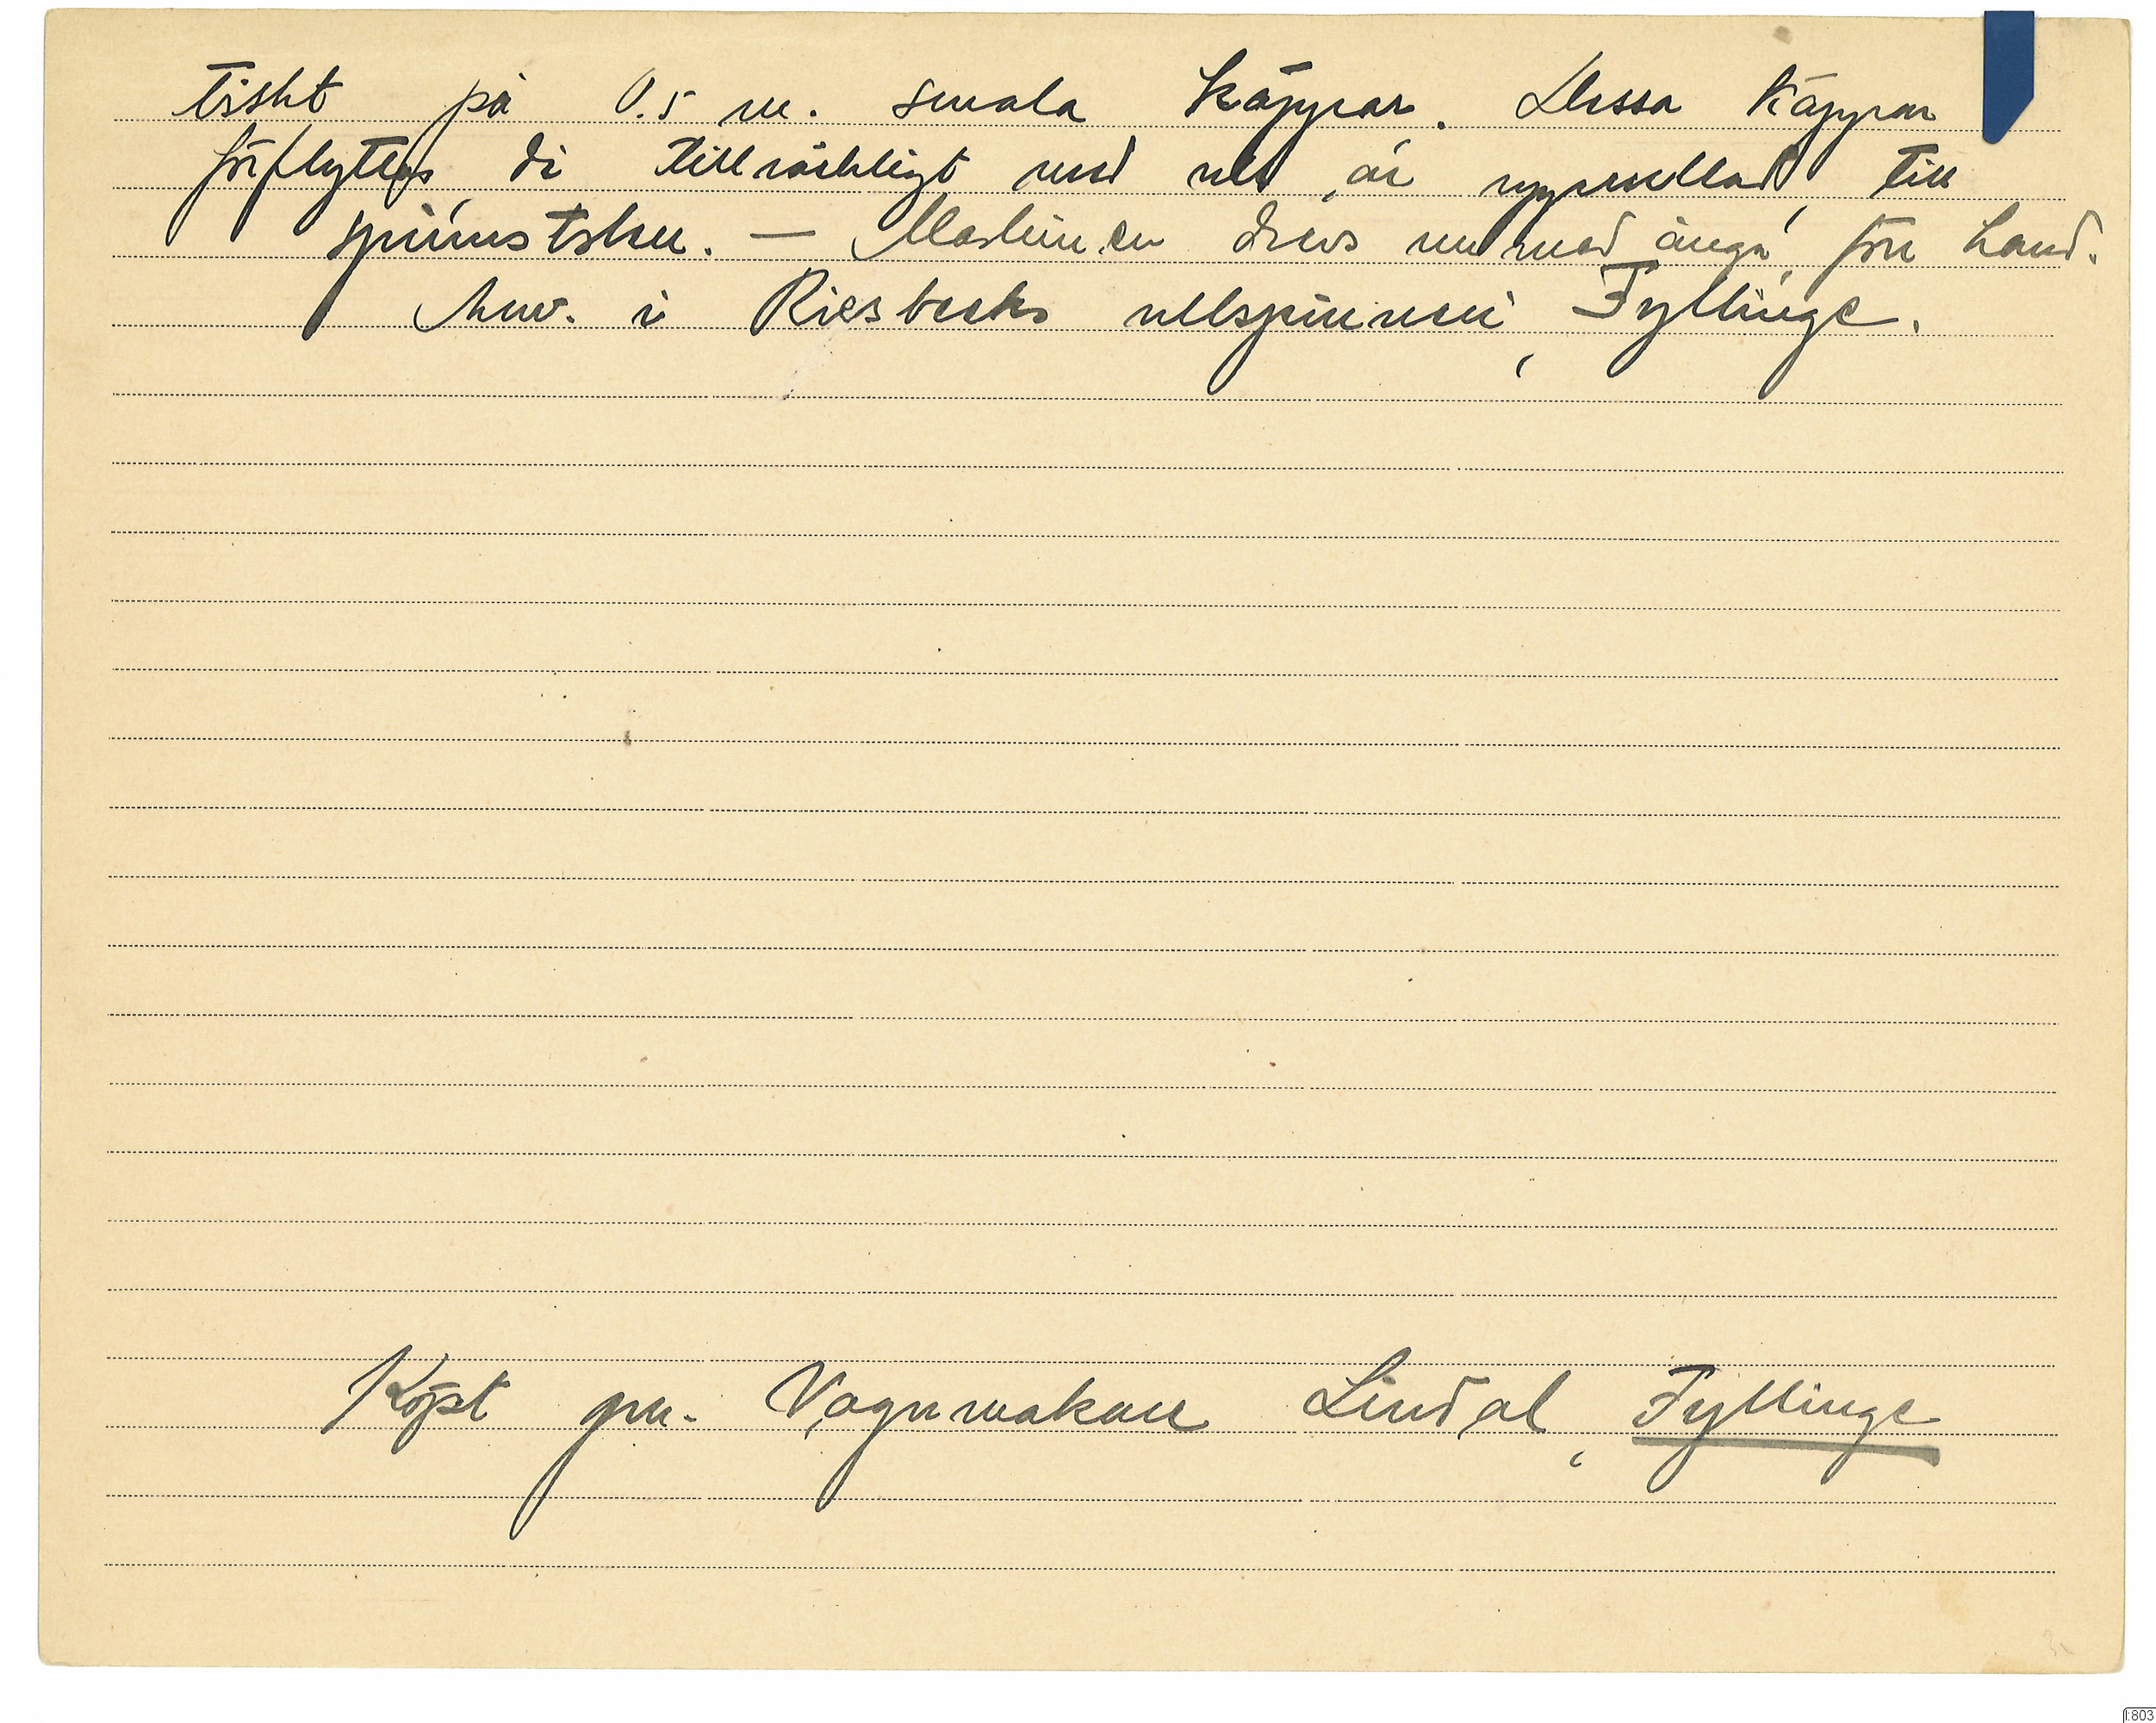 tiskt på 0.5 m. smala käppar. Dessa käppar
förflyttas, då tillräckligt med ull är upprullad, till
spinnstolen. — Maskinen drevs med ånga, förr hand.
Anv. i Riesbecks ullspinneri, Fyllinge.
Köpt gm. Vagnmakare Lindal, Fyllinge
1:803